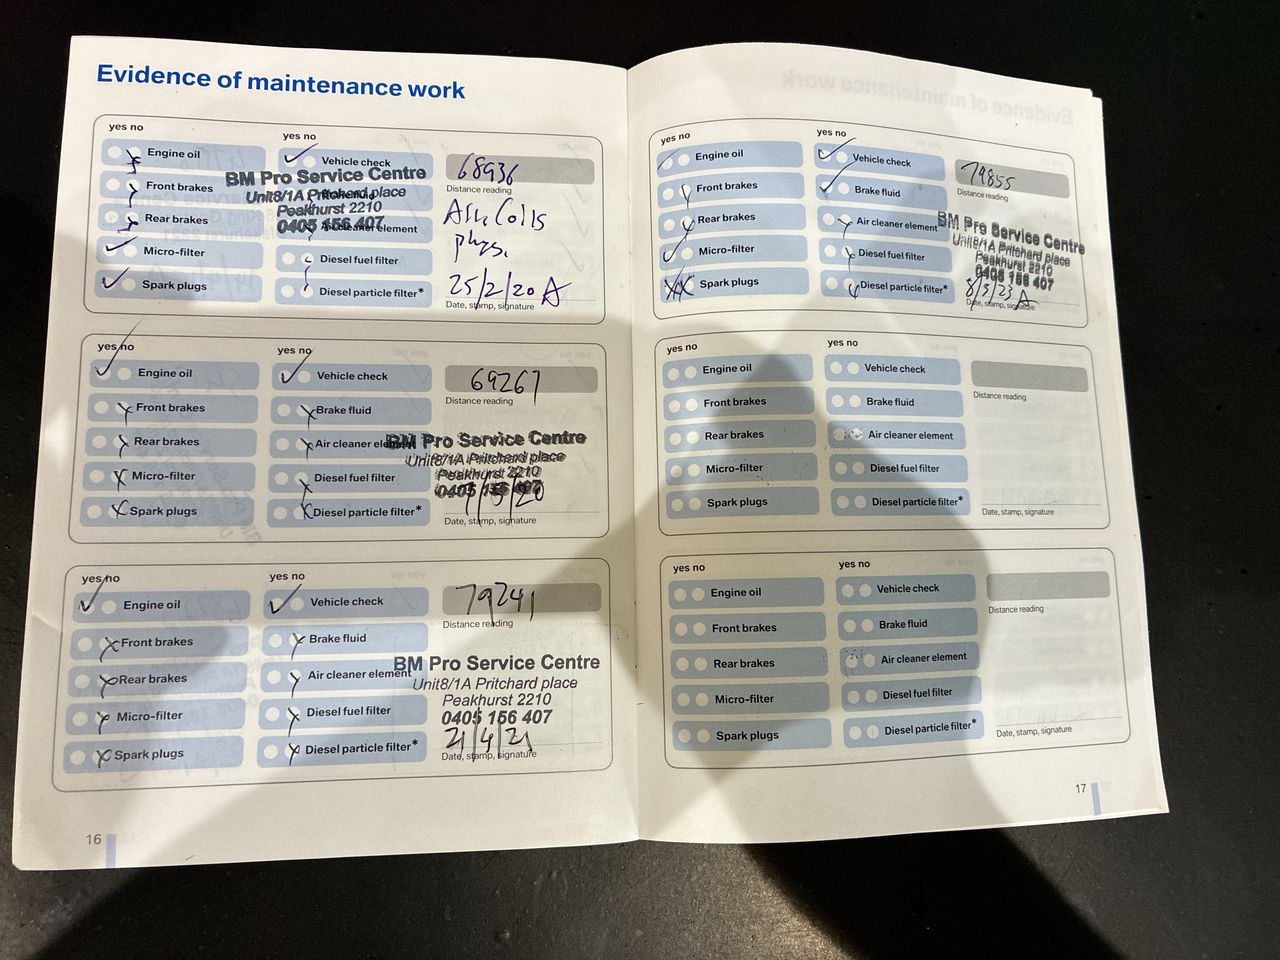 Evidence of maintenance work
yes no
yes no
Engine oil
Vehicle check
68936
Distance reading
Front brakes
BM Pro Service Centre
Unit8/1A Pritchard place
Peakhurst 2210
0405 156 407
Rear brakes
Air cleaner element
Coils
Micro-filter
Diesel fuel filter
plugs.
Spark plugs
Diesel particle filter*
25/2/20
Date, stamp, signature
yes no
yes no
Engine oil
Vehicle check
69267
Distance reading
Front brakes
Brake fluid
Rear brakes
Air cleaner element
BM Pro Service Centre
Unit8/1A Pritchard place
Peakhurst 2210
0405 156 407
Micro-filter
Diesel fuel filter
Spark plugs
Diesel particle filter*
Date, stamp, signature
yes no
yes no
Engine oil
Vehicle check
79241
Distance reading
Front brakes
Brake fluid
Rear brakes
Air cleaner element
BM Pro Service Centre
Unit8/1A Pritchard place
Peakhurst 2210
0405 156 407
Micro-filter
Diesel fuel filter
21/4/21
Spark plugs
Diesel particle filter*
Date, stamp, signature
16
yes no
yes no
Engine oil
Vehicle check
79855
Distance reading
Front brakes
Brake fluid
Rear brakes
Air cleaner element
BM Pro Service Centre
Unit8/1A Pritchard place
Peakhurst 2210
0405 156 407
Micro-filter
Diesel fuel filter
Spark plugs
Diesel particle filter*
8/3/23
Date, stamp, signature
yes no
yes no
Engine oil
Vehicle check
Distance reading
Front brakes
Brake fluid
Rear brakes
Air cleaner element
Micro-filter
Diesel fuel filter
Spark plugs
Diesel particle filter*
Date, stamp, signature
yes no
yes no
Engine oil
Vehicle check
Distance reading
Front brakes
Brake fluid
Rear brakes
Air cleaner element
Micro-filter
Diesel fuel filter
Spark plugs
Diesel particle filter*
Date, stamp, signature
17